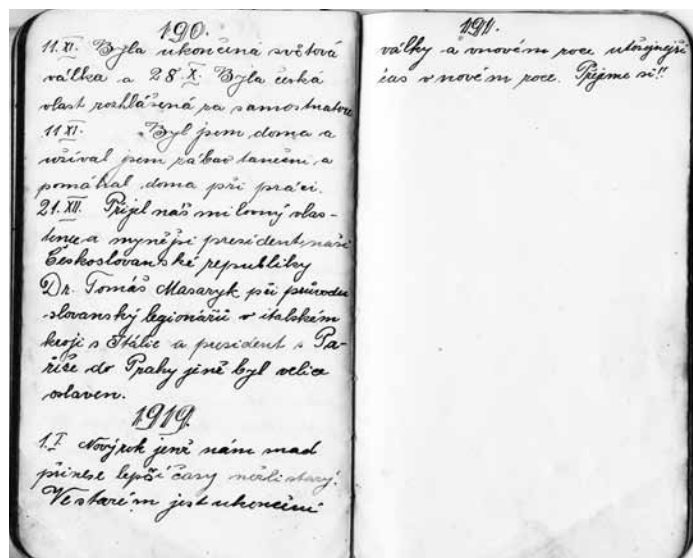 190.
11.XI. Byla ukončená světová
válka a 28.X. Byla česká
vlast rozhlášená za samostnatou
11.XI. Byl jsem doma a
užíval jsem zábav taneční a
pomáhal doma při práci.
21.XII. Přijel náš milovný vlas-
tenec a nynější president naši
Československé republiky
Dr. Tomáš Masaryk při průvodu
slovanský legionářů v italském
kroji s Itálie a president s Pa-
říše do Prahy jenž byl velice
oslaven.
1919.
1.I. Nový rok jenž nám snad
přinese lepší časy nežli starý.
Ve starém jest ukončení
191.
války a v novém roce
čas v novém roce. Přejme si!!